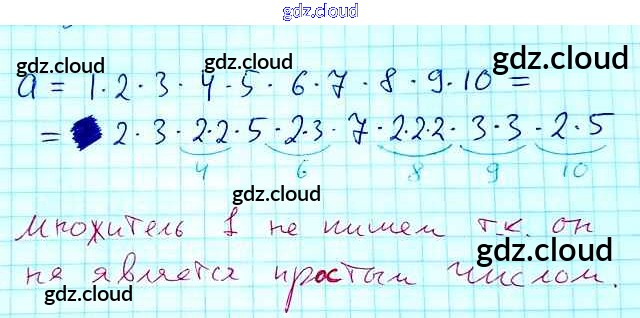 gdz.cloud
gdz.cloud gdz.cloud
a = 1·2·3·4·5·6·7·8·9·10 =
= 2·3·2·2·5·2·3·7·2·2·2·3·3·2·5
4 6 8 9 10
gdz.cloud
gdz.cloud
множитель 1 не пишем т.к. он
gdz.cloud
не является простым числом.
gdz.cloud
gdz.cloud